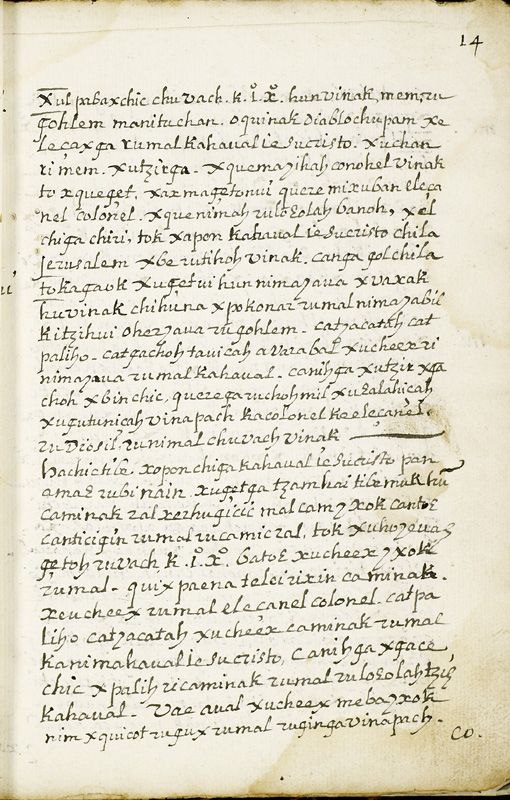 14
Xul pabaxchic chuvach. k. i. x. hunvinak, mem, ru
gohlem manituchan. oquinak diablo chupam xe
leçaxga rumal kahaual iesucristo. xuchan
ri mem. xutzirga. xquemayihah conohel vinak
to xqueget, xax magetonui quere mixuban eleça
nel colonel. xquenimah rulogolah banoh, xel
chiga chiri, tok xapon kahaual iesucristo chila
Jerusalem xberutihoh vinak. canga golchila
tokagaok xugetui hun nimayaua xvaxak
huvinak chihuna xpokonar rumal nimayabil
kitzihui oheryaua rugohlem. catyacatah cat
paliho. catgachoh tauicah auarabal xucheex ri
nimayaua rumal kahaual. canihga xutzir xga
choh xbinchic, querega ruchohmil xugalahicah
xugutunicah vinapach kacolonel keeleçanel.
ru Diosil. runimal chuvach vinak
hachictile. xoponchiga kahaual iesucristo pan
amag rubi nain. xugetga tzamhai tibemuk hu
caminak ral xerhugicic malcam yxok cantog
canticigin rumal rucamic ral, tok xuhoyeuah
getoh ruvach, k. i. x. batog xucheex yxok
rumal. quixpaena telei rixin caminak.
xeucheex rumal elecanel colonel. catpa
liho catyacatah xucheex caminak rumal
kanimahaual iesucristo, canihga xgace
chic xpalih ricaminak rumal rulogolah tzih
kahaual. Vae aual xucheex mebayxok
nim xquicot rugux rumal ruginga vinapach.
co.